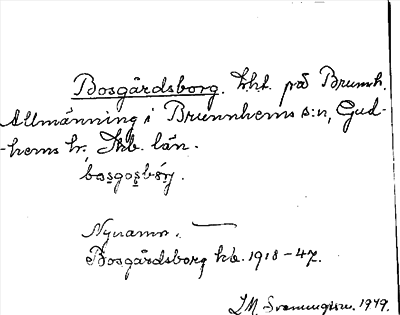 Bosgårdsborg. lht. på Brunnh.
Allmänning i Brunnhems s:n, Gud-
-hems hr, Skb. län.
bosgosbórj.
Nynamn. —
Bosgårdsborg kb. 1918-47.
I.M. Svenningson. 1949.